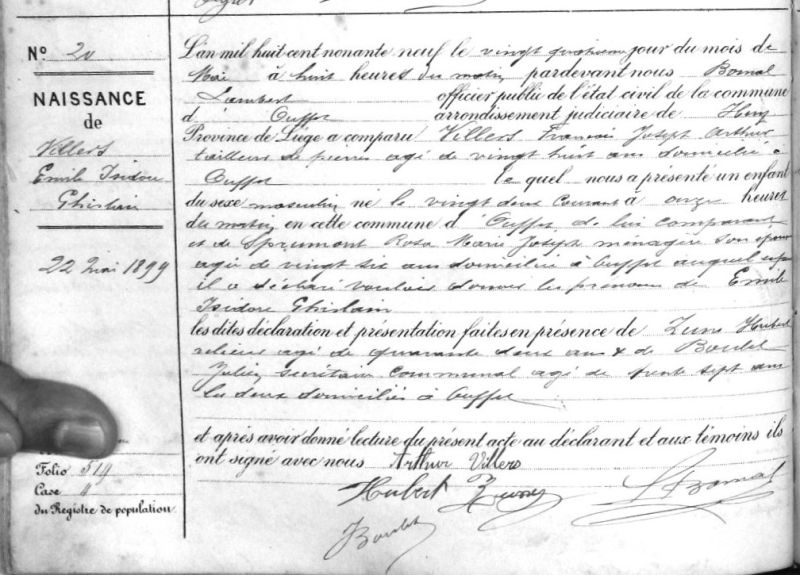 N.º 20
NAISSANCE
de
Villers
Emile Isidore
Ghislain
22 Mai 1899
Folio 519
Case 4
du Registre de population
L'an mil huit cent nonante neuf le vingt quatrième jour du mois de
Mai à huit heures du matin pardevant nous Bomal
Lambert officier public de l'état civil de la commune
d' Ouffet arrondissement judiciaire de Huy
Province de Liége a comparu Villers François Joseph Arthur
tailleur de pierres agé de vingt huit ans domicilié à
Ouffet le quel nous a présenté un enfant
du sexe masculin né le vingt deux Courant à onze heures
du matin en cette commune d' Ouffet de lui comparant
et de Sprumont Rosa Marie Joseph ménagère son épouse
agée de vingt six ans domiciliée à Ouffet auquel enfant
il a déclaré vouloir donner les prénoms de Emile
Isidore Ghislain
les dites déclaration et présentation faites en présence de Hubert
agé de quarante deux ans & de Boulet
Julien secrétaire Communal agé de trente sept ans
les deux domiciliés à Ouffet
et après avoir donné lecture du présent acte au déclarant et aux témoins ils
ont signé avec nous Arthur Villers
Hubert L Bomal
Boulet